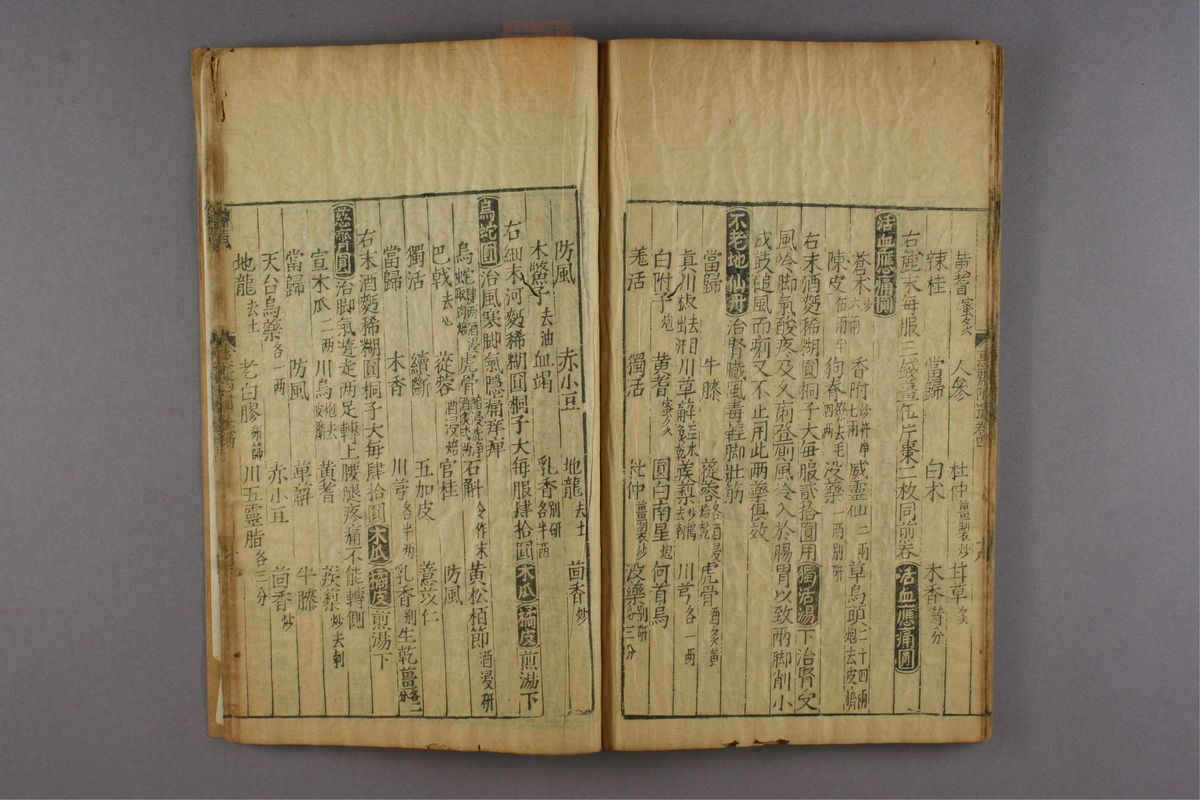 黃耆蜜炙 人參 杜仲薑製炒 甘草炙
辣桂 當歸 白朮 木香等分
右麄末每服三錢薑伍片棗二枚同前卷活血應痛圓
活血應痛圓
蒼朮炒六兩 香附炒七兩 威靈仙二兩 草烏頭二十四兩炮去皮臍
陳皮伍兩半 狗脊燎去毛四兩 没藥一兩別研
右末酒麪稀糊圓桐子大每服貳拾圓用獨活湯下治腎受
風冷脚氣酸疼及久病登厠風冷入於腸胃以致兩脚削小
成鼓槌風而痢又不止用此兩藥俱效
不老地仙丹治腎臟風毒輕脚壯筋
當歸 牛膝 蓯蓉各酒浸焙乾 虎骨酒炙黃
真川椒去目出汗 川萆薢 蒺藜炒去刺 川芎各一兩
白附子炮 黃耆蜜炙 圓白南星炮 何首烏
羌活 獨活 杜仲薑製炒 没藥別研三分
防風 赤小豆 地龍去土 茴香炒
木鱉子去油 血竭 乳香別研各半兩
右細末河麪稀糊圓桐子大每服肆拾圓木瓜橘皮煎湯下
烏蛇圓治風寒脚氣隱痛痒痺
烏蛇 虎骨 石斛令作末 黃松栢節酒浸研
巴戟去心 蓯蓉酒浸焙 官桂 防風
獨活 續斷 五加皮 薏苡仁
當歸 木香 川芎各半兩 乳香別 生乾薑
右末酒麪稀糊圓桐子大每肆拾圓木瓜橘皮煎湯下
慈濟圓治脚氣遶走兩足轉上腰腿疼痛不能轉側
宣木瓜二兩 川烏炮去皮臍 黃耆 蒺藜炒去刺
當歸 防風 萆薢 牛膝
天台烏藥各一兩 赤小豆 茴香炒
地龍去土 老白膠 川五靈脂各三分